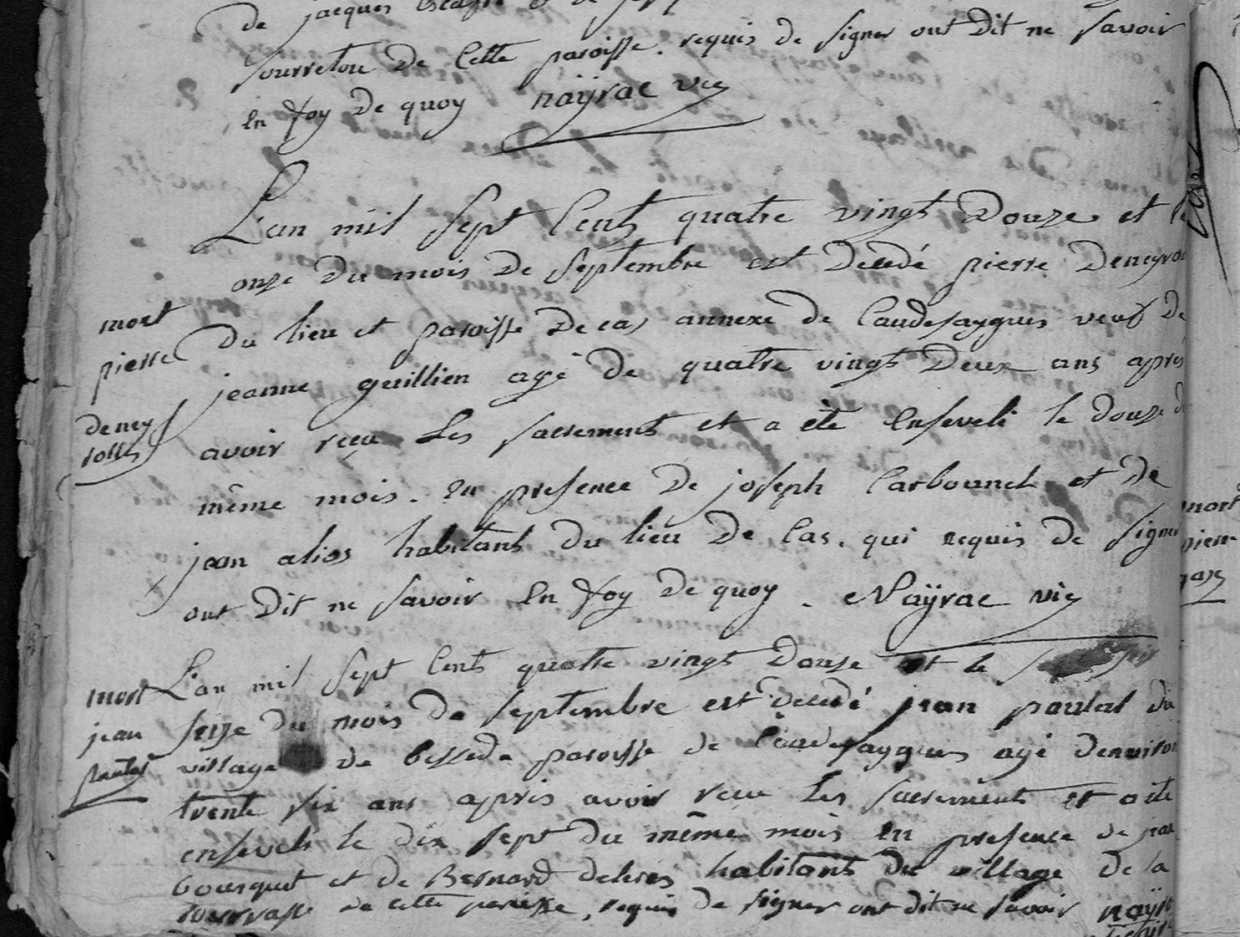 de jacques
de Cette paroisse. requis de signer ont Dit ne savoir
En foy De quoy naÿrac vic
L'an mil sept Cents quatre vingts Douze et le
onze du mois De septembre est Decedé pierre Deneyrol
mort
pierre
deney
rolles
Du lieu et paroisse De cas annexe de Caudesaygues veuf De
jeanne guillien agé de quatre vingts Deux ans après
avoir reçu Les sacrements et a été Enseveli le douze du
même mois. En presence De joseph Carbounel et de
jean alios habitants Du lieu De Cas. qui requis de signer
ont Dit ne savoir En foy De quoy. Naÿrac vic
mort
jean
poutal
L'an mil sept Cents quatre vingts douze et le
seize du mois de septembre est decedé jean poutal du
village de bessede paroisse de Caudesaygues agé denviron
trente six ans après avoir reçu Les sacrements et a été
enseveli le dix sept du même mois En presence de
bousquet et de Bernard habitants du village de la
de cette paroisse, requis de signer ont dit ne savoir naÿrac
mort
pierre